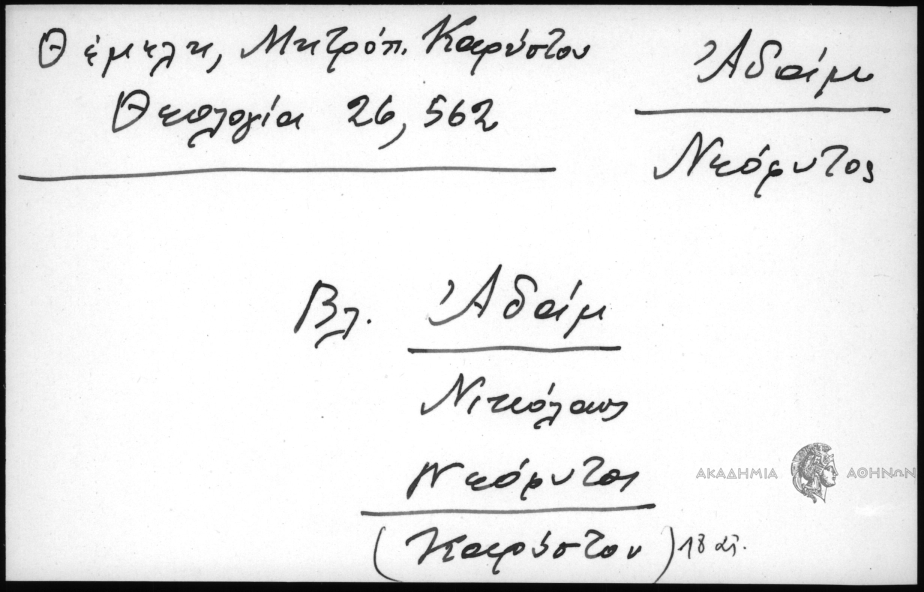 Θέμελη, Μητρόπ. Καρύστου
Θεολογία 26, 562
Ἀδάμ
Νεόφυτος
Βλ. Ἀδάμ
Νικόλαος
Νεόφυτος
(Καρύστου) 18 αἰ.
ΑΚΑΔΗΜΙΑ ΑΘΗΝΩΝ